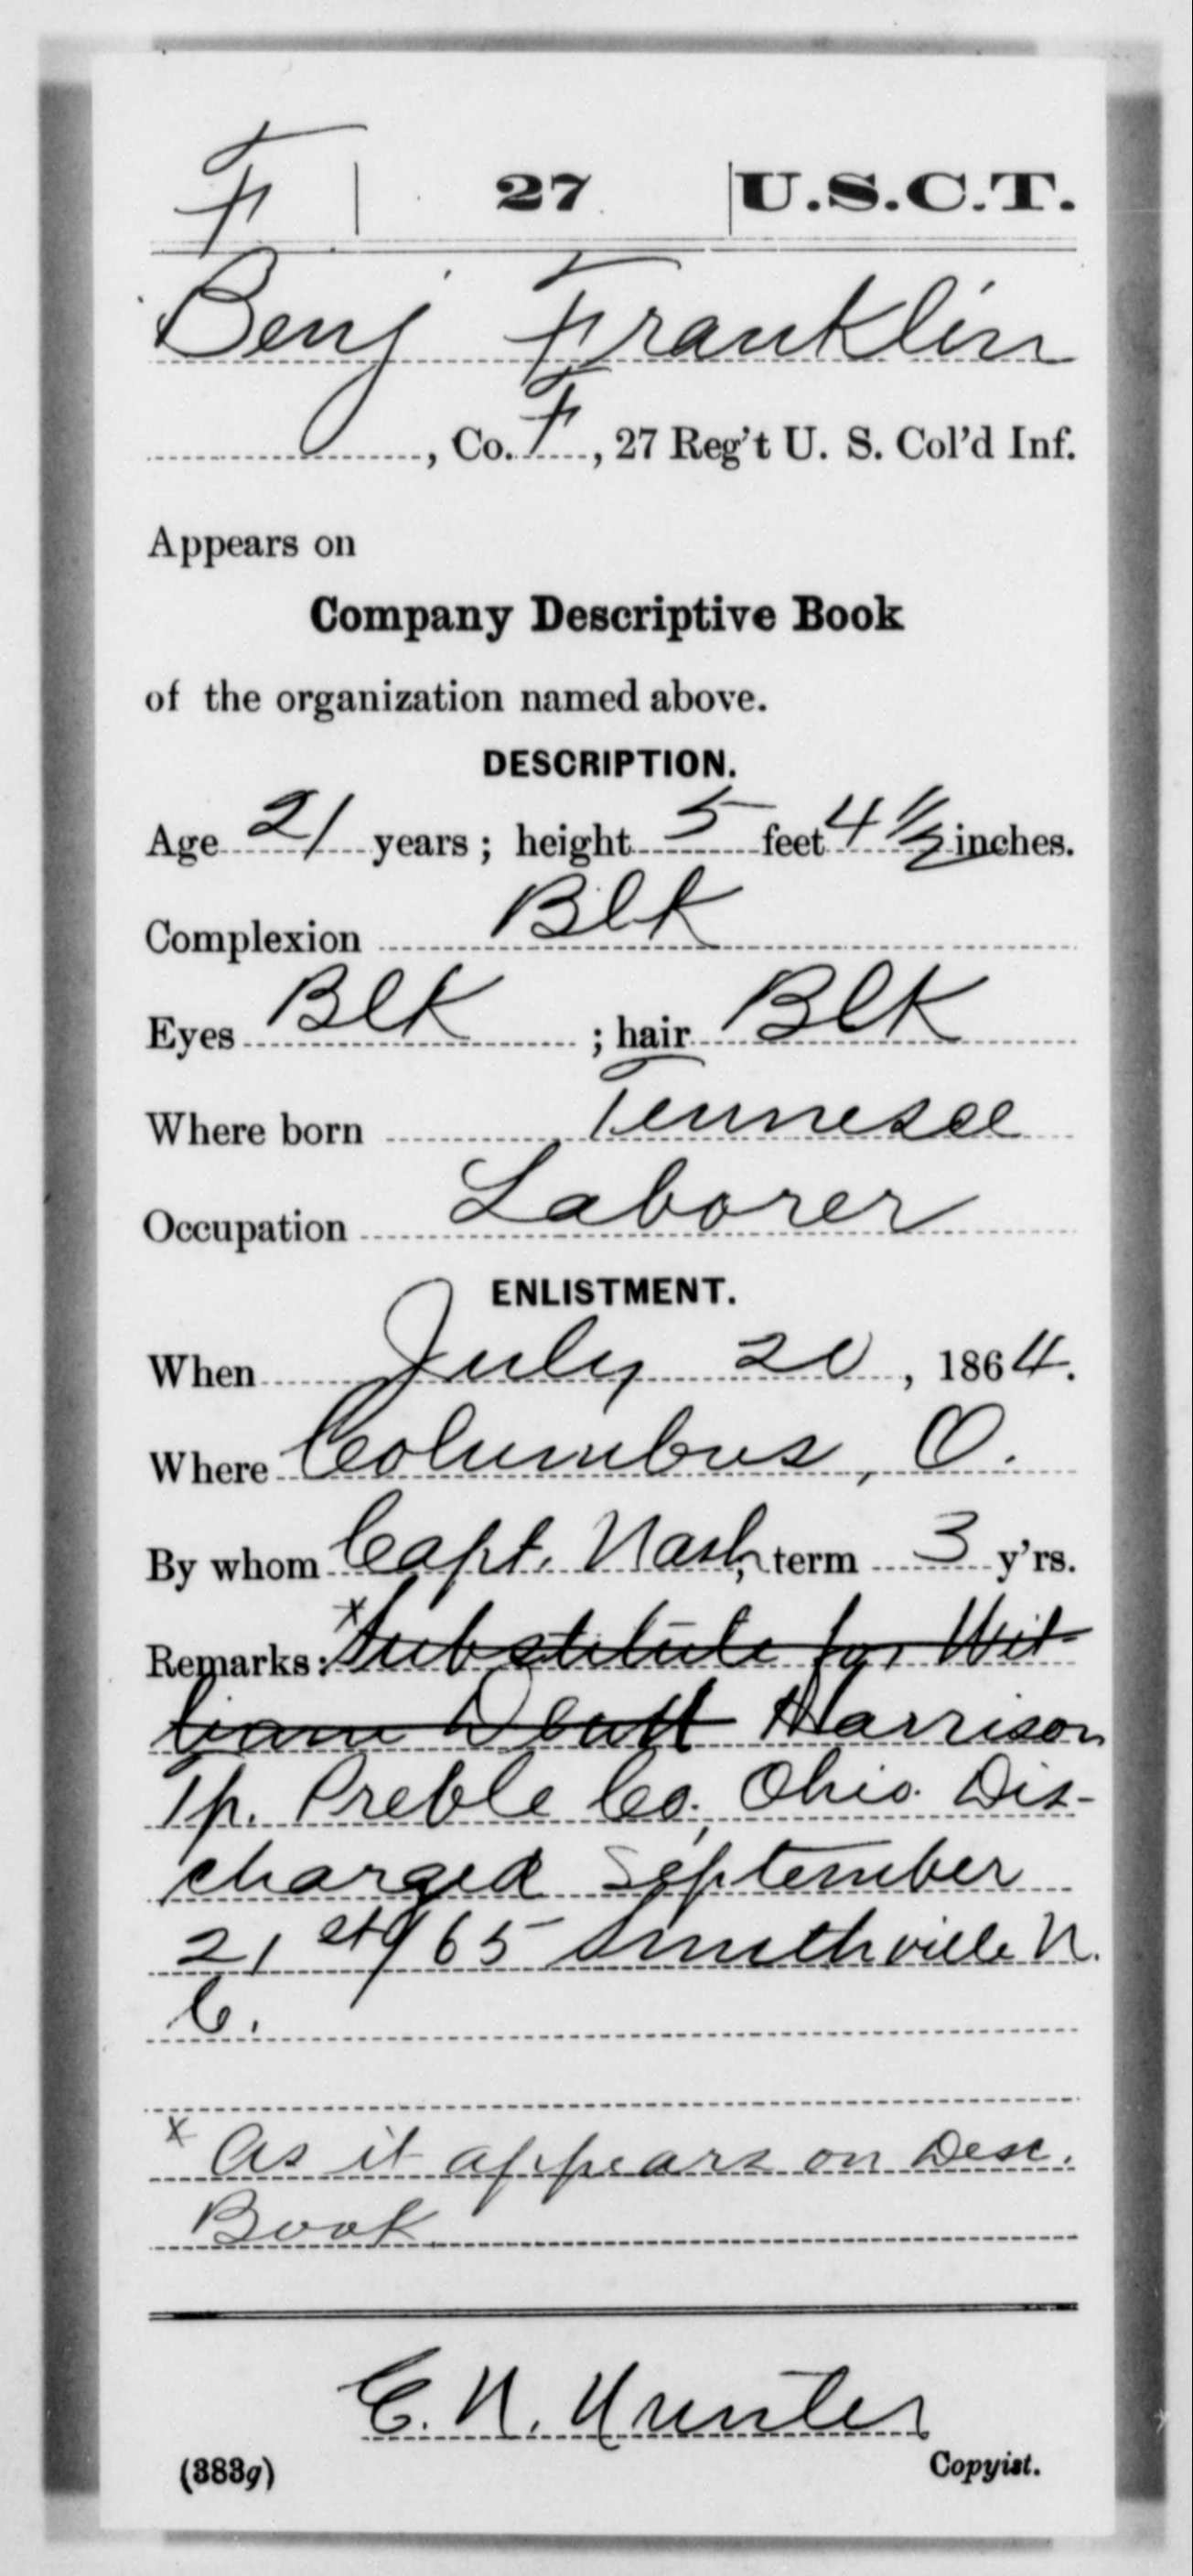 F | 27 | U.S.C.T.
Benj Franklin
, Co. F, 27 Reg't U. S. Col'd Inf.
Appears on
Company Descriptive Book
of the organization named above.
DESCRIPTION.
Age 21 years; height 5 feet 4 1/2 inches.
Complexion Blk
Eyes Blk ; hair Blk
Where born Tennesee
Occupation Laborer
ENLISTMENT.
When July 20, 1864.
Where Columbus, O.
By whom Capt. Nash, term 3 y'rs.
Remarks: x Substitute for Wil-
liam Harrison
Tp. Preble Co., Ohio. Dis-
charged September
21st/65 Smithville N.
C.
x As it appears on Desc.
Book
C. N. Hunter
(383g) Copyist.